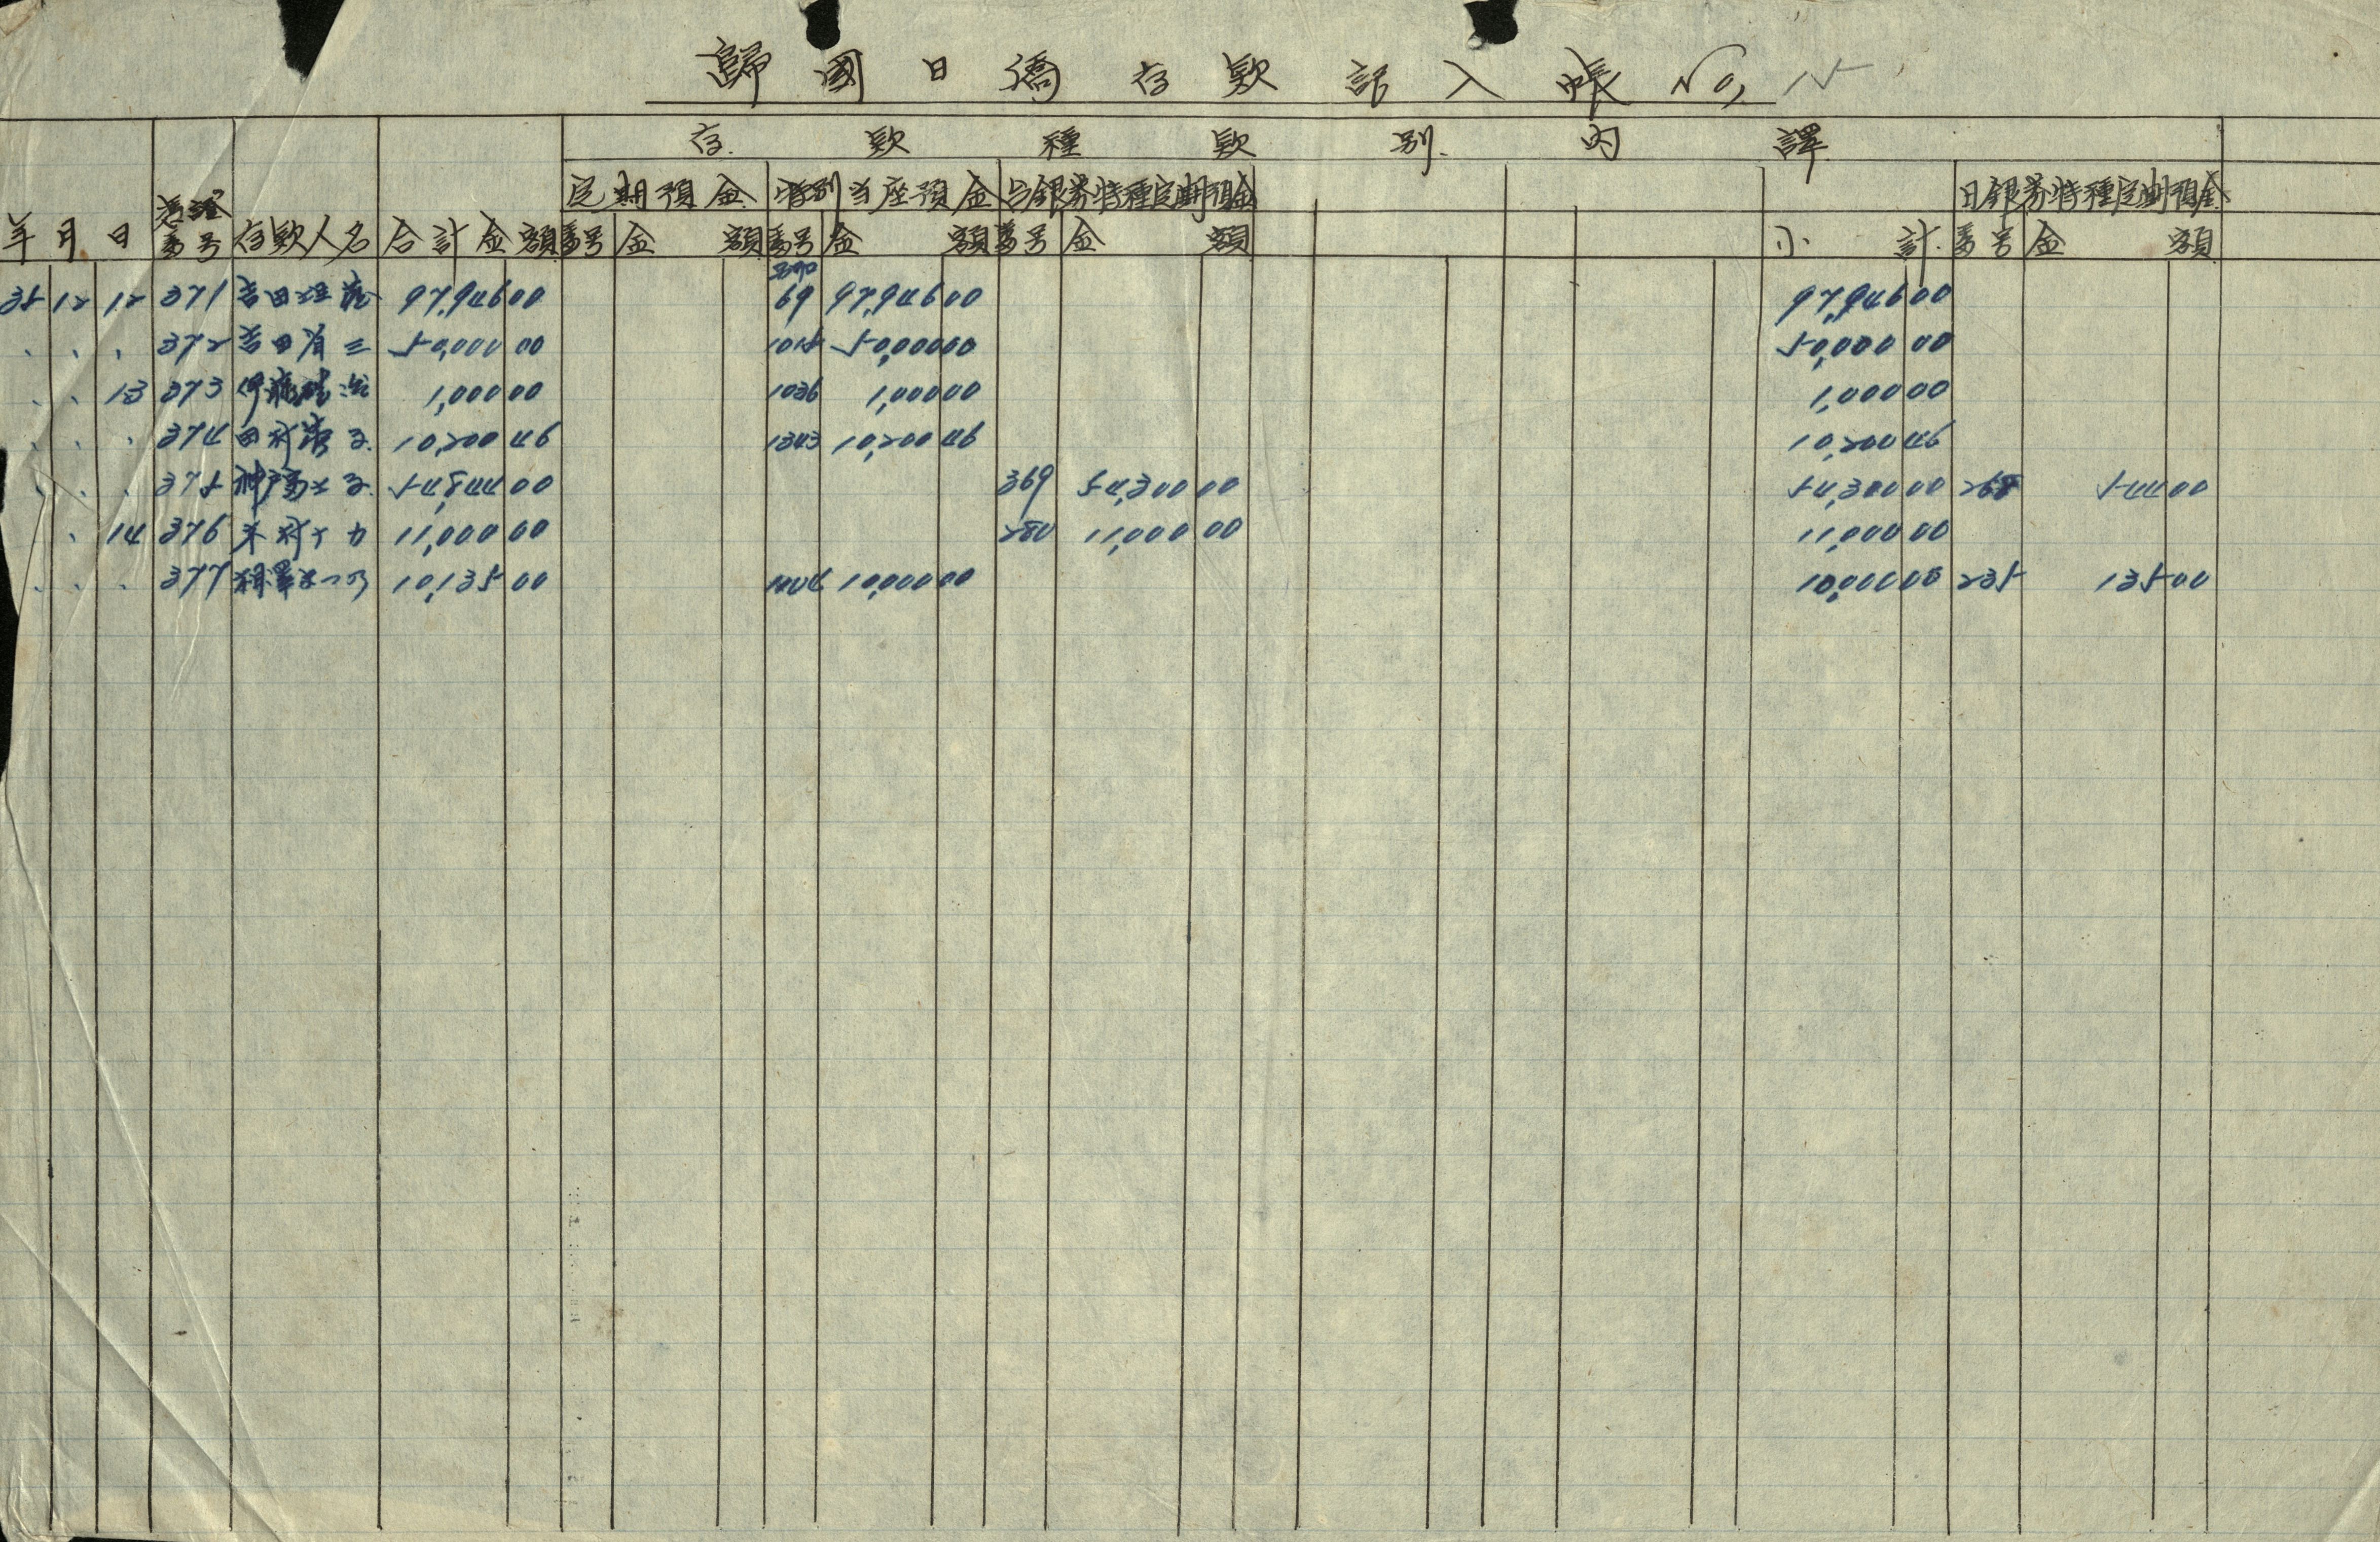 歸國日僑存款記入帳 No, 15
存款種款別内譯
定期預金 特別当座預金 台銀券特種定期預金 日銀券特種定期預金
年 月 日 番号 存款人名 合計金額 番号 金額 番号 金額 番号 金額 小計 番号 金額
35 12 12 371 吉田 97,946 00 69 97,946 00 97,946 00
〃 〃 〃 372 吉田 三 50,000 00 1015 50,000 00 50,000 00
〃 〃 13 373 伊藤 治 1,000 00 1036 1,000 00 1,000 00
〃 〃 〃 374 田村 子 10,200 46 1343 10,200 46 10,200 46
〃 〃 〃 375 神 子 54,844 00 369 54,300 00 54,300 00 268 544 00
〃 〃 14 376 木村 力 11,000 00 280 11,000 00 11,000 00
〃 〃 〃 377 10,135 00 10,000 00 10,000 00 235 135 00